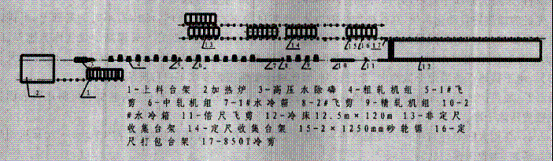 1-上料台架 2加热炉 3-高压水除磷 4-粗轧机组 5-1#飞
剪 6-中轧机组 7-1#水冷箱 8-2#飞剪 9-精轧机组 10-2
#水冷箱 11-倍尺飞剪 12-冷床12.5m×120m 13-非定尺
收集台架 14-定尺收集台架 15-2×1250mm砂轮锯 16-定
尺打包台架 17-850T冷剪